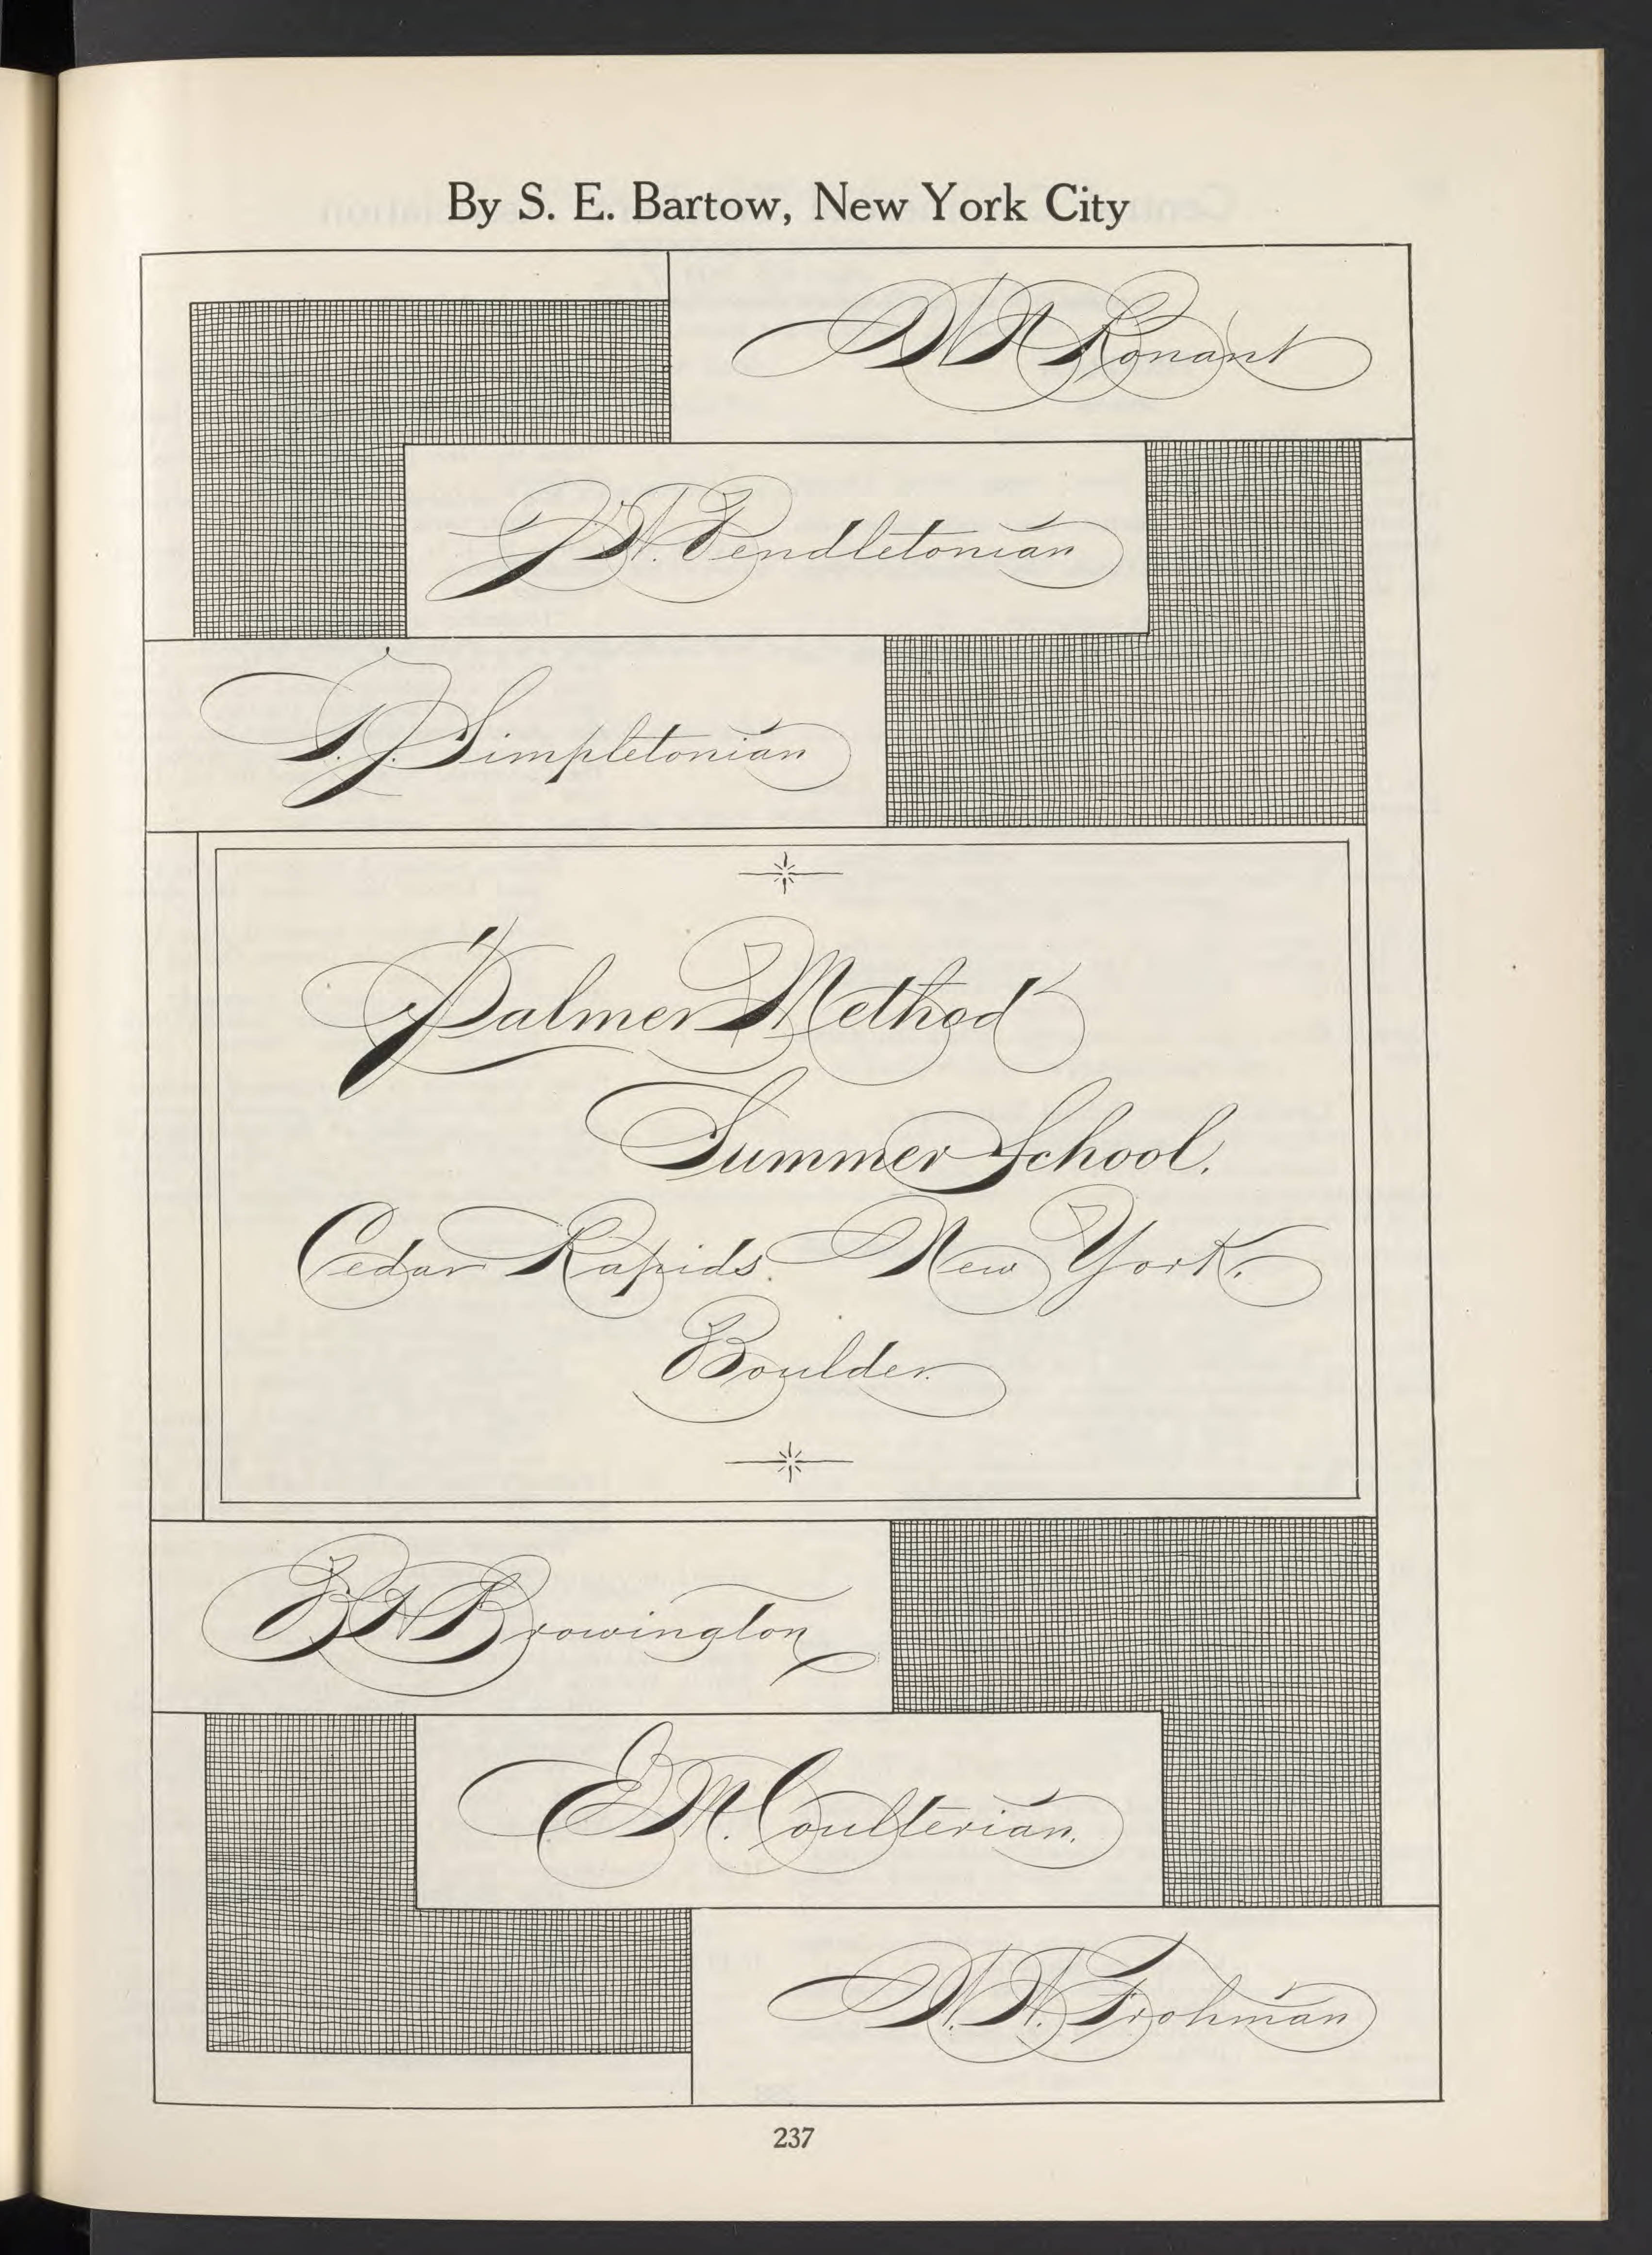 By S. E. Bartow, New York City
W N Ronant
J. W. Pendletonian
S. J. Simpletonian
Palmer Method
Summer School.
Cedar Rapids. New York.
Boulder.
Browington
E M. Coulterian.
W. W. Frohman
237